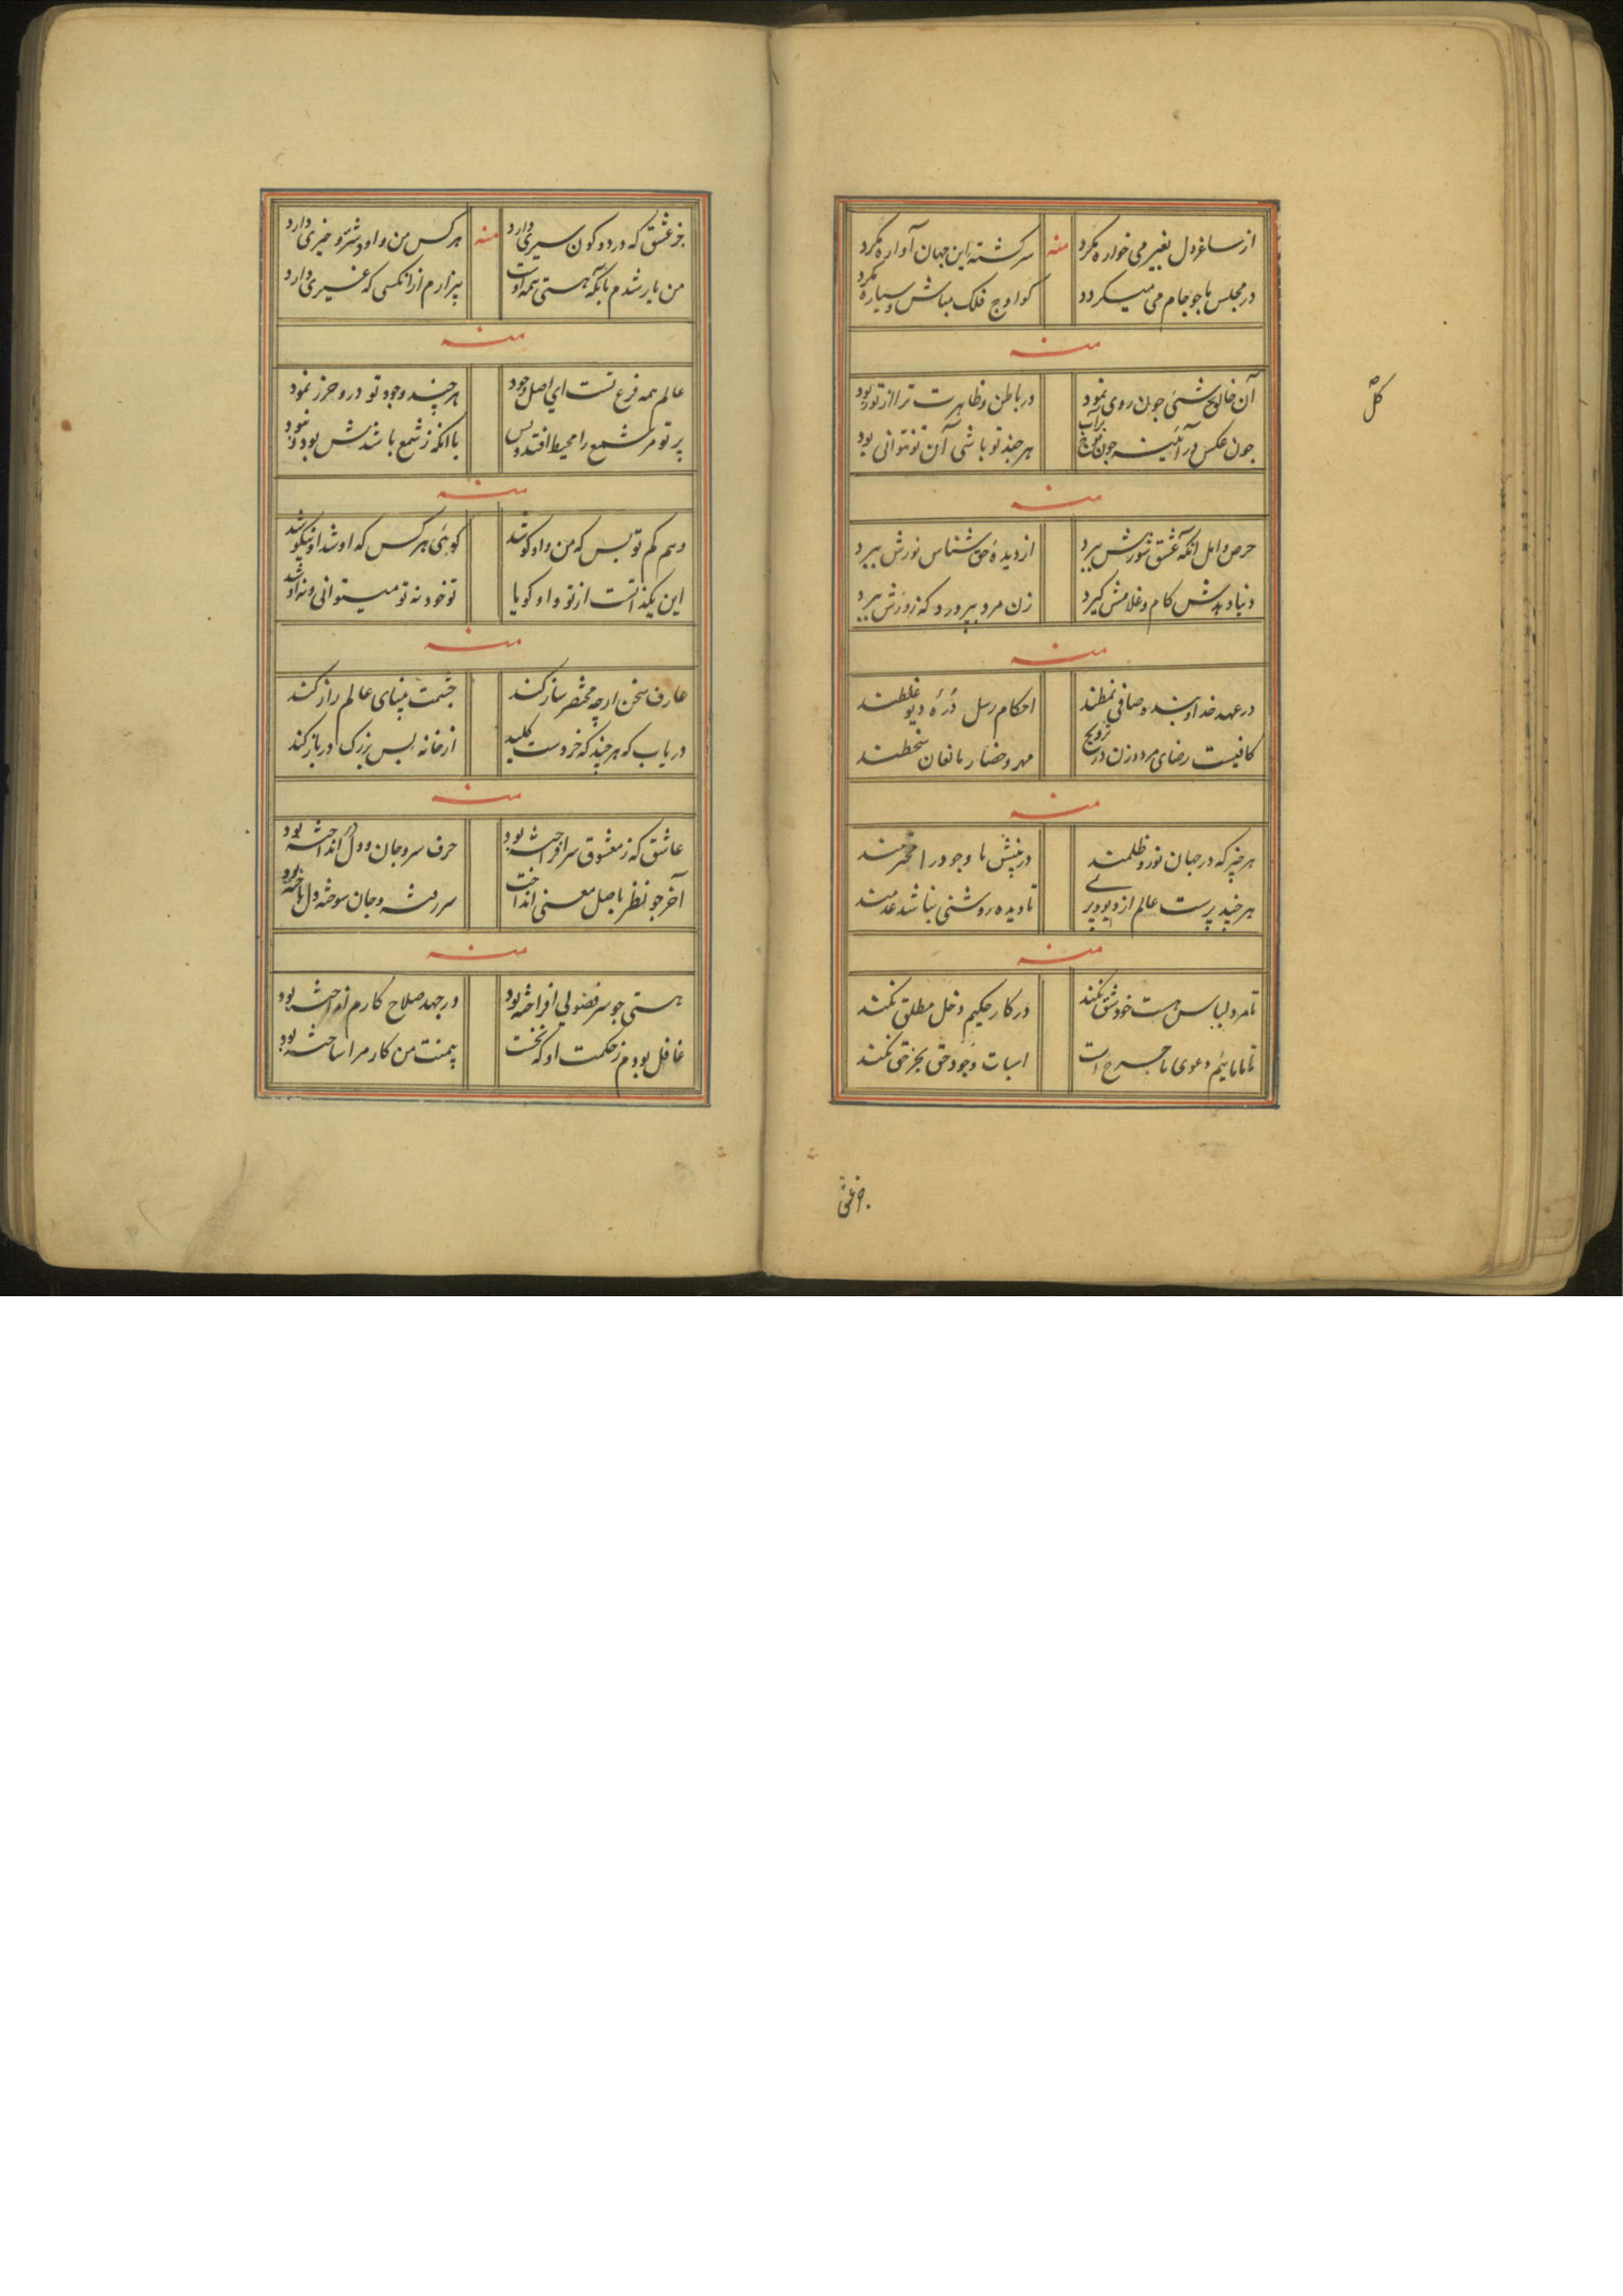 از ساغر دل بغیر می خواره نکرد منه سرکشته این جهان آواره نکرد
در مجلس ما جو جام می میکردد کو اوج فلک مباش و سیاره نکرد
منه
آن خالق جون روی نمود در باطن و ظاهرت ترا از تو ربود
جون عکس در آئینه جون موج برآب هر جند تو باشی آن تو نتوانی بود
منه
حرص و امل انکه عشق شورش ببرد از دیده حق شناس نورش ببرد
دنیا دهدش کام و غلامش کیرد زن مرد بپرورد که زورش ببرد
منه
در عهد خدا و بنده صافی نمطند احکام رسل دره دیو غلطند
کافیست رضای مرد و زن در تزویج مهر و حضار مانعان سخطند
منه
هر چیز که در جهان نور و ظلمند در پیش ما وجود را محترمند
هر چند پرست عالم از دیو و پری تا دیده روشنی نباشد عدمند
منه
تا مرد لباس هست خود شق نکند در کار حکیم دخل مطلق نکند
تا ما مائیم دعوی ما جرح است اسبات وجود حق بجز حق نکند
جز عشق
جز عشق که در دو کون سیری دارد منه هر کس من و او و شر و خیری دارد
من یار شدم بآنکه هستی همه اوست بیزارم از انکسی که غیری دارد
منه
عالم همه فرع تست ای اصل وجود هر چند وجود تو در و حرز نمود
پرتو مر شمع را محیط افتد و بس با انکه ز شمع باشدش بود و نبود
منه
وهم کم تو بس که من و او کو شد کو بئی هر کس که او شد او نیکو شد
این یکذاتست از تو و او کویا تو خود نه تو میتوانی و نه او شد
منه
عارف سخن ارچه مختصر ساز کند جشمت بینای عالم راز کند
دریاب که هر چند که خردست کلید از خانه بس بزرک در باز کند
منه
عاشق که ز معشوق سر افراخته بود حرف سر و جان و دل در انداخته بود
آخر جو نظر باصل معنی انداخت سر رفته و جان سوخته و دل باخته بود
منه
هستی جو سر فضولی افراخته بود در جهد صلاح کارم انداخته بود
غافل بودم ز حکمت او که نخست بیمنت من کار مرا ساخته بود